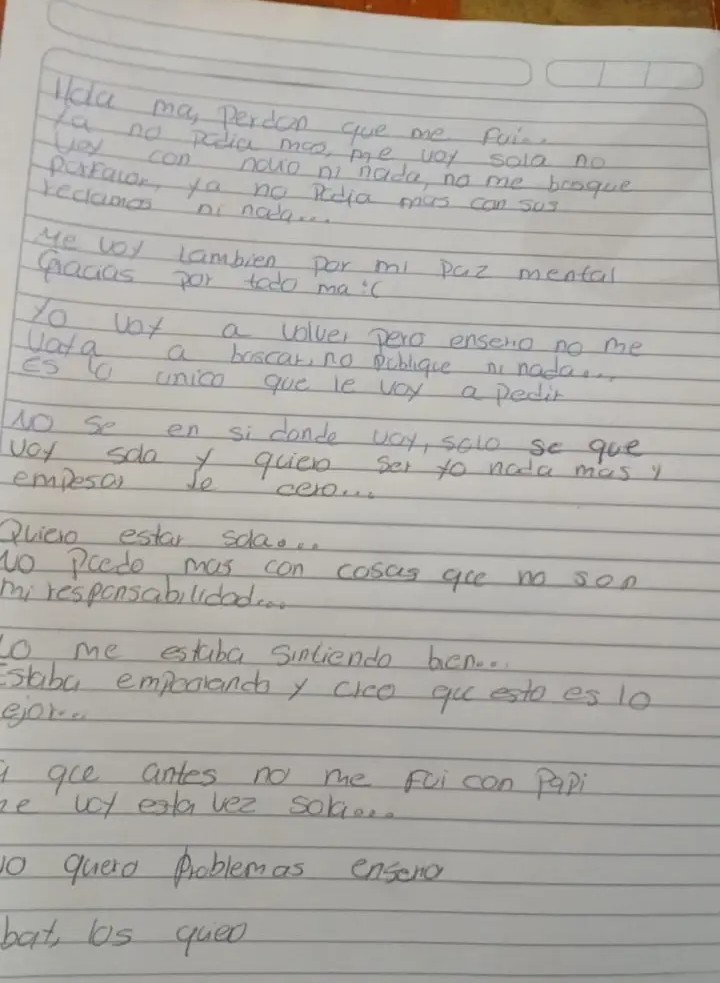 Hola ma, perdon que me fui...
Ya no podia mas, me voy sola no
voy con novio ni nada, no me bosque
porfavor, ya no podia mas con sus
reclamos ni nada...
Me voy tambien por mi paz mental
Gracias por todo ma :(
Yo voy a volver pero enserio no me
vaya a boscar, no publique ni nada...
es lo unico que le voy a pedir
No se en si donde voy, solo se que
voy sola y quiero ser yo nada mas y
empesar de cero...
Quiero estar sola...
No puedo mas con cosas que no son
mi responsabilidad...
No me estaba sintiendo bien...
Estaba empeorando y creo que esto es lo
ejor...
que antes no me fui con papi
me voy esta vez sola...
no quero problemas enserio
bay, los queo